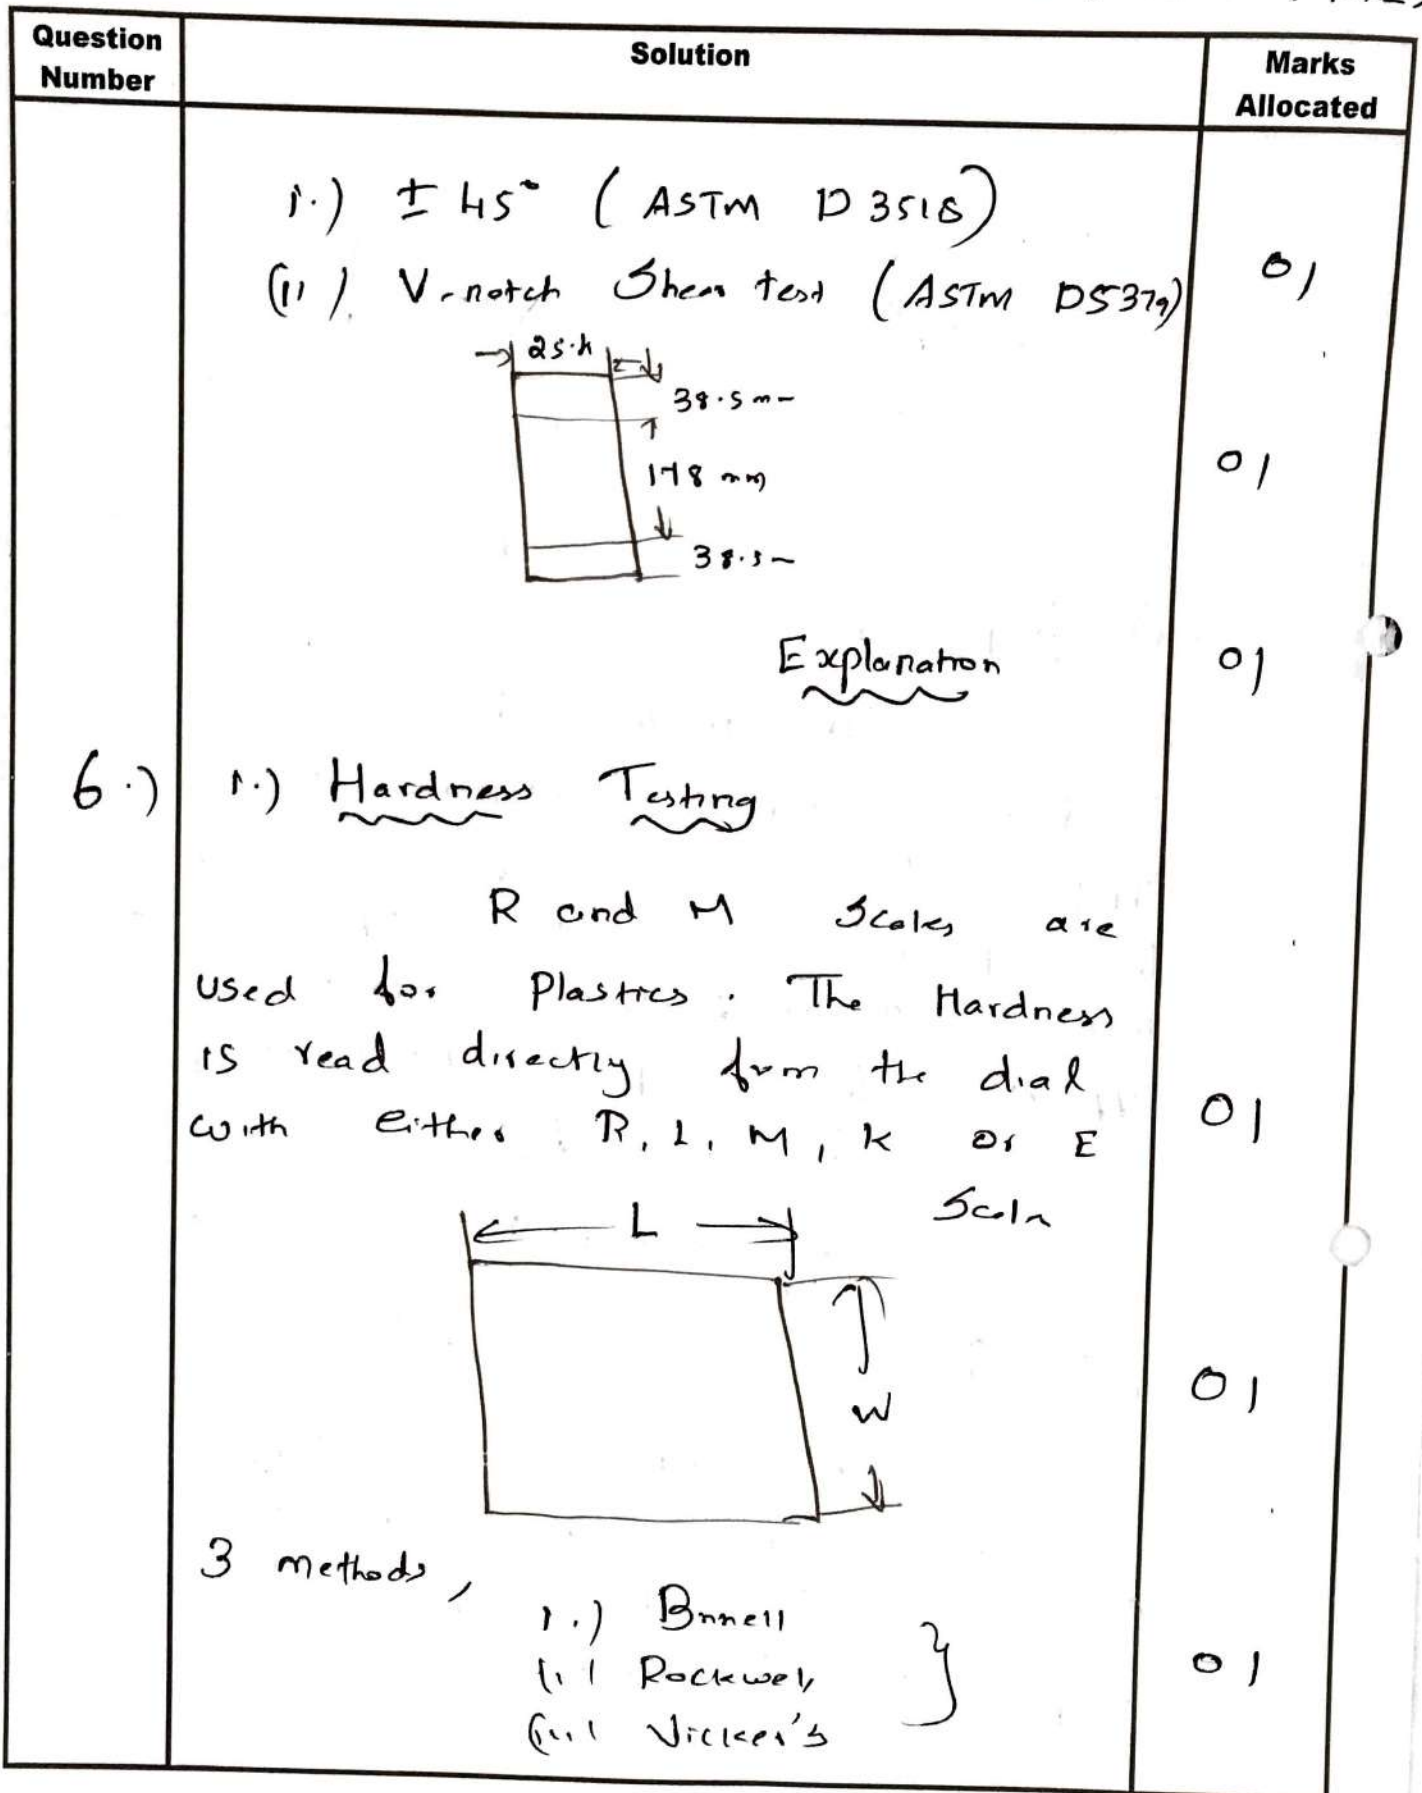 Question Number
Solution
Marks Allocated
i.) ± 45° (ASTM D 3518)
(ii). V-notch Shear test (ASTM D5379)
01
25.4
38.5 m
178 mm
38.5
01
Explanation
01
6.)
i.) Hardness Testing
R and M Scales are
used for Plastics. The Hardness
is read directly from the dial
with either R, L, M, K or E
Scale
01
L
W
01
3 methods,
i.) Brinell
(ii) Rockwell
(iii) Vicker's
01